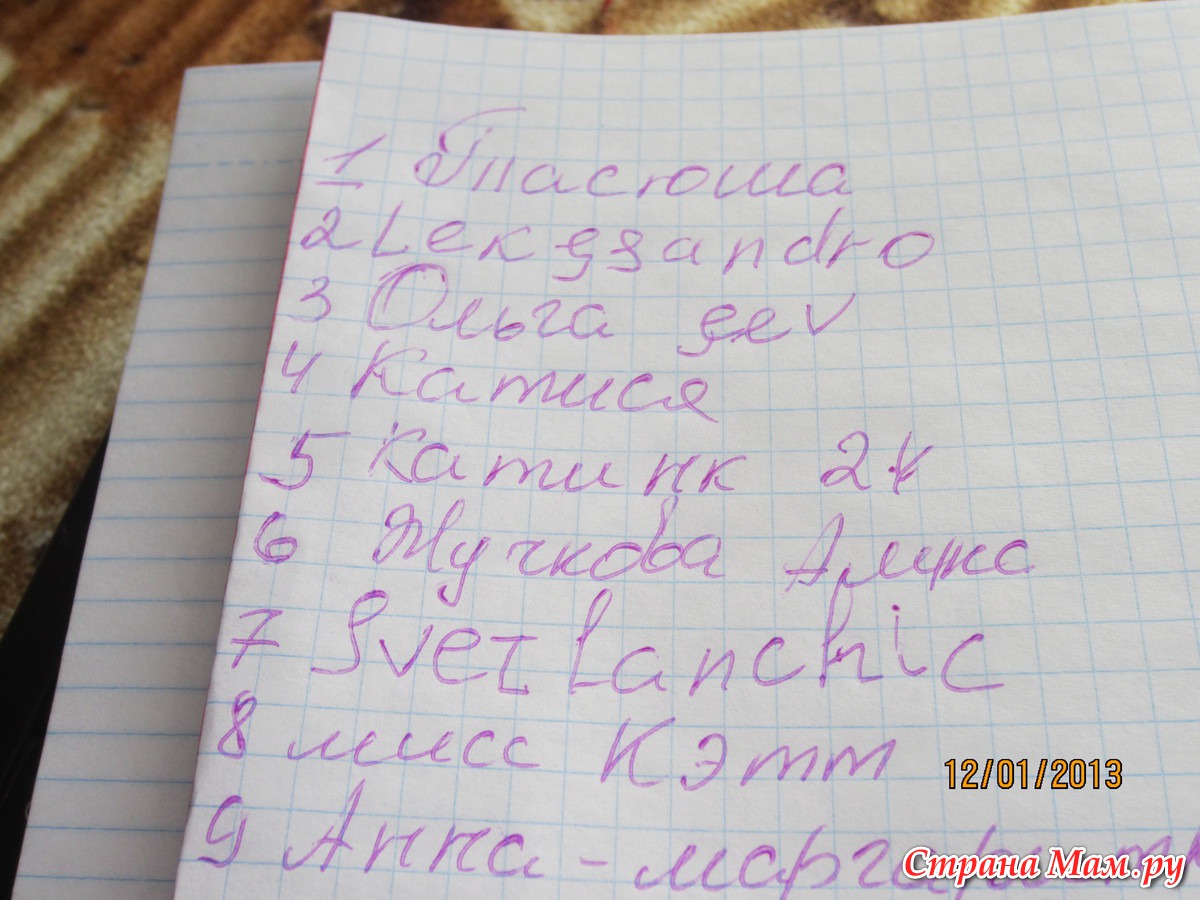 1 Тасюша
2 Lekssandro
3 Ольга gev
4 Катися
5 Катинк 24
6 Жучкова Алекс
7 Svetlanchic
8 мисс Кэтт
9 Анна-маргарит
12/01/2013
Страна Мам.ру